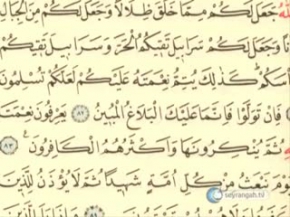 جَعَلَ لَكُم مِّمَّا خَلَقَ ظِلَالًا وَجَعَلَ لَكُم مِّنَ الْجِبَالِ
وَجَعَلَ لَكُمْ سَرَابِيلَ تَقِيكُمُ الْحَرَّ وَسَرَابِيلَ تَقِيكُم
بَأْسَكُمْ كَذَٰلِكَ يُتِمُّ نِعْمَتَهُ عَلَيْكُمْ لَعَلَّكُمْ تُسْلِمُونَ
فَإِن تَوَلَّوْا فَإِنَّمَا عَلَيْكَ الْبَلَاغُ الْمُبِينُ ٨٢ يَعْرِفُونَ نِعْمَتَ
ثُمَّ يُنكِرُونَهَا وَأَكْثَرُهُمُ الْكَافِرُونَ ٨٣
نَبْعَثُ مِن كُلِّ أُمَّةٍ شَهِيدًا ثُمَّ لَا يُؤْذَنُ لِلَّذِينَ